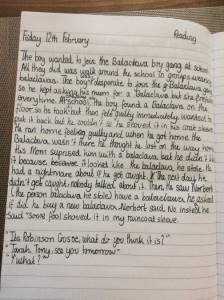 Friday 12th February Reading
The boy wanted to join the Balaclava boy gang at school.
All they did was walk around the school in groups wearing
balaclavas. The boy desperate to join the Balaclava gang
so he kept asking his mum for a Balaclava but she said no
everytime. At school, the boy found a Balaclava on the
floor so he took but then felt guilty immediately, wanted to
put it back but he couldn't so he shoved it in his coat sleeve.
He ran home feeling guilty and when he got home the
Balaclava wasn't there he thought he lost on the way home.
His Mom suprised him with a balaclava but he didn't like
it because because it looked like the balaclava he stole. He
had a nightmare about if he got caught. The next day he
didn't get caught, nobody talked about it. Then he saw Norbert
(the person balaclava he stole) have a balavclava, he asked
if did he buy a new balaclava. Norbert said No instead he
said "Some fool shoved it in my raincoat sleeve.
"Its Robinson Crusoe, what do you think it is?"
"Tarah, Tony, see you tomorrow"
"What?"